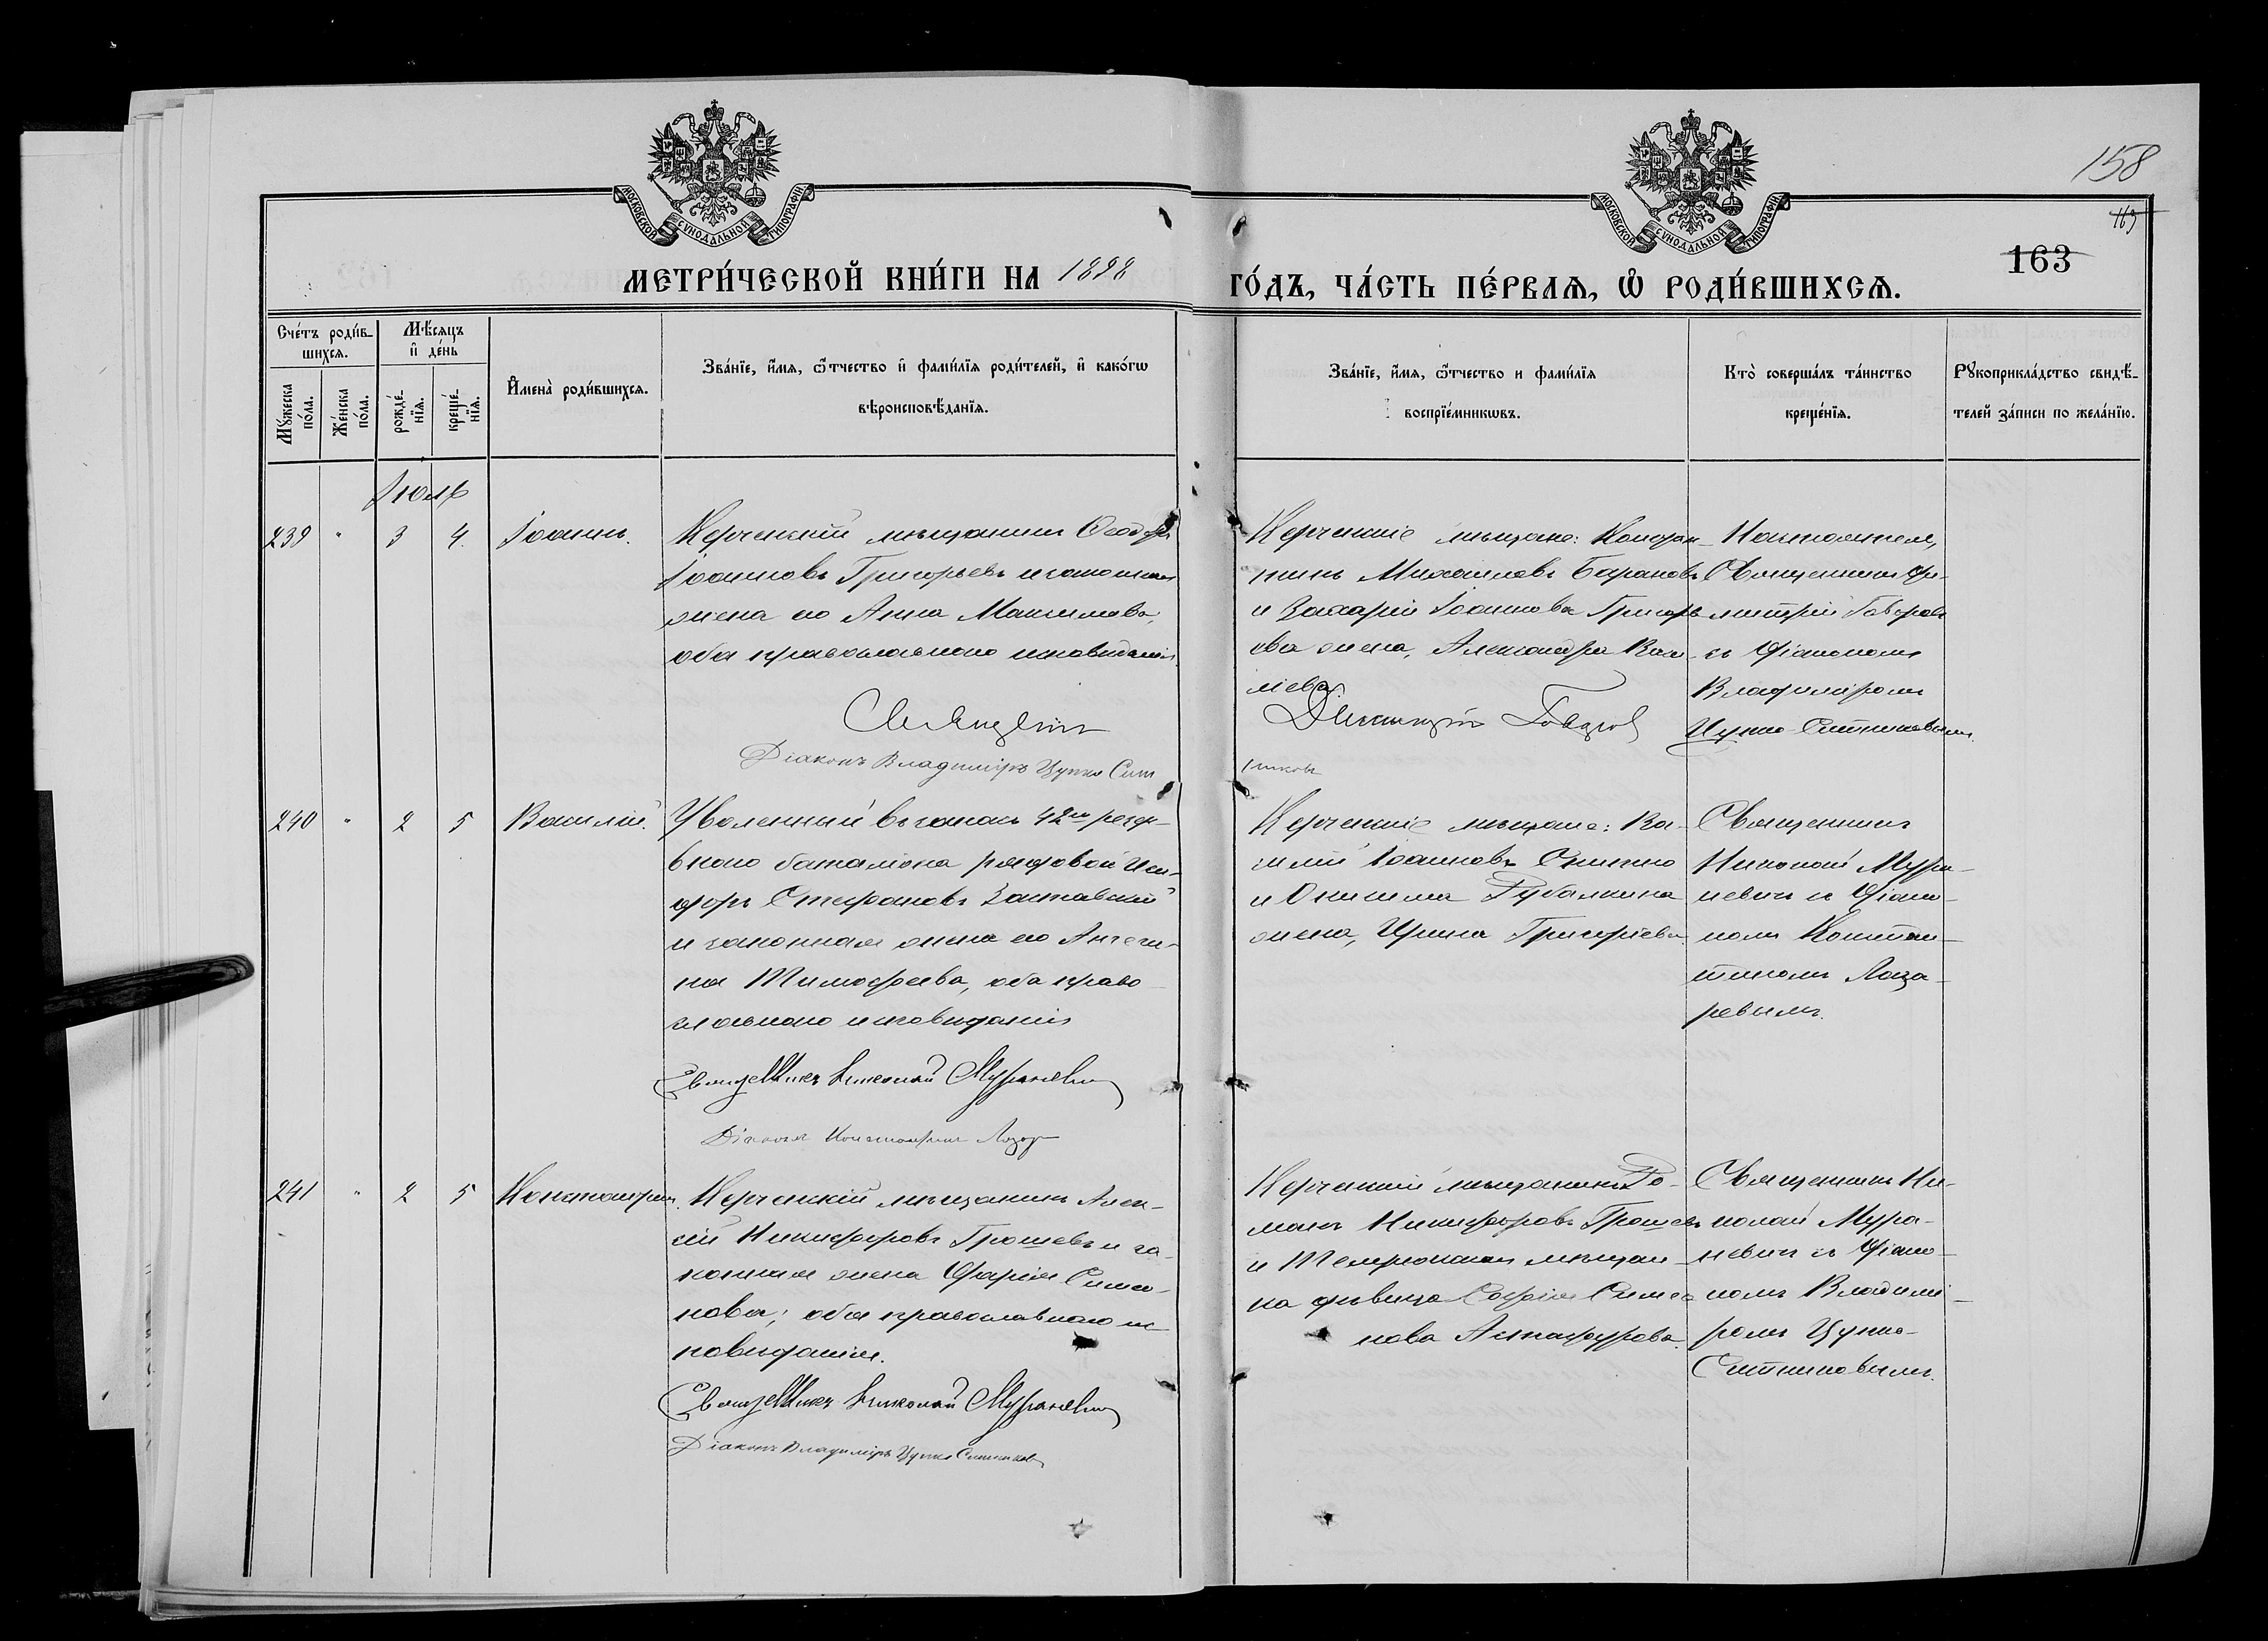 158
163
163
МОСКОВСКОЙ СУНОДАЛЬНОЙ ТИПОГРАФІИ
МОСКОВСКОЙ СУНОДАЛЬНОЙ ТИПОГРАФІИ
МЕТРИ́ЧЕСКОЙ КНИ́ГИ НА 1898 ГО́ДЪ, ЧА́СТЬ ПЕ́РВАѦ, Ѡ҆ РОДИ́ВШИХСѦ.
Сче́тъ роди́в-
шихсѧ.
Мꙋ́жеска по́ла.
Же́нска по́ла.
Мѣ́сѧцъ
и҆ де́нь
рожде́-
нїѧ.
креще́-
нїѧ.
И҆мена̀ роди́вшихсѧ.
Зва́нїе, и҆́мѧ, ѻ҆́тчество и҆ фами́лїѧ роди́телей, и҆ како́гѡ
вѣроисповѣ́данїѧ.
Зва́нїе, и҆́мѧ, ѻ҆́тчество и фами́лїѧ
воспрїе́мникѡвъ.
Кто̀ соверша́лъ та́инство
креще́нїѧ.
Рꙋкоприкла́дство свидѣ́-
телей за́писи по жела́нїю.
Іюль
239 " 3 4. Іоаннъ.
Керченскій мѣщанинъ Ѳеодоръ
Іоанновъ Григорьевъ и законная
жена его Анна Максимова,
оба православнаго исповѣданія.
Священникъ
Діаконъ Владиміръ Цупко Сит
Керченскіе мѣщане: Констан-
тинъ Михаиловъ Барановъ
и Захарія Іоаннова Григорь
ева жена, Александра Васи-
ліева.
Димитрій Говоров
никовъ
Настоятель,
Священникъ Ди-
митрій Говоровъ
съ Діакономъ
Владиміромъ
Цупко-Ситниковымъ.
240 " 2 5 Василій.
Уволенный въ запасъ 42го резер-
внаго баталіона рядовой Ники-
форъ Стефановъ Заставскій
и законная жена его Ангели-
на Тимофеева, оба право
славнаго исповѣданія
Священникъ Николай Мураневич
Діаконъ Константинъ Лазар
Керченскіе мѣщане: Ва-
силій Іоанновъ
и Онисима Рубалкина
жена, Ирина Григоріева.
Священникъ
Николай Мура-
невичъ съ Діако-
номъ Констан-
тиномъ Лаза-
ревымъ.
241 " 2 5 Константинъ.
Керченскій мѣщанинъ Алек-
сій Никифоровъ Грошевъ и за-
конная жена Дарія Симео-
нова; оба православнаго ис-
повѣданія.
Священникъ Николай Мураневич
Діаконъ Владиміръ Цупко Ситников
Керченскій мѣщанинъ Ро-
манъ Никифоровъ Грошевъ
и Темрюкская мѣщан-
ка дѣвица Софія Симео
нова Астафурова.
Священникъ Ни-
колай Мура-
невичъ съ Діако-
номъ Владимі-
ромъ Цупко-
Ситниковымъ.